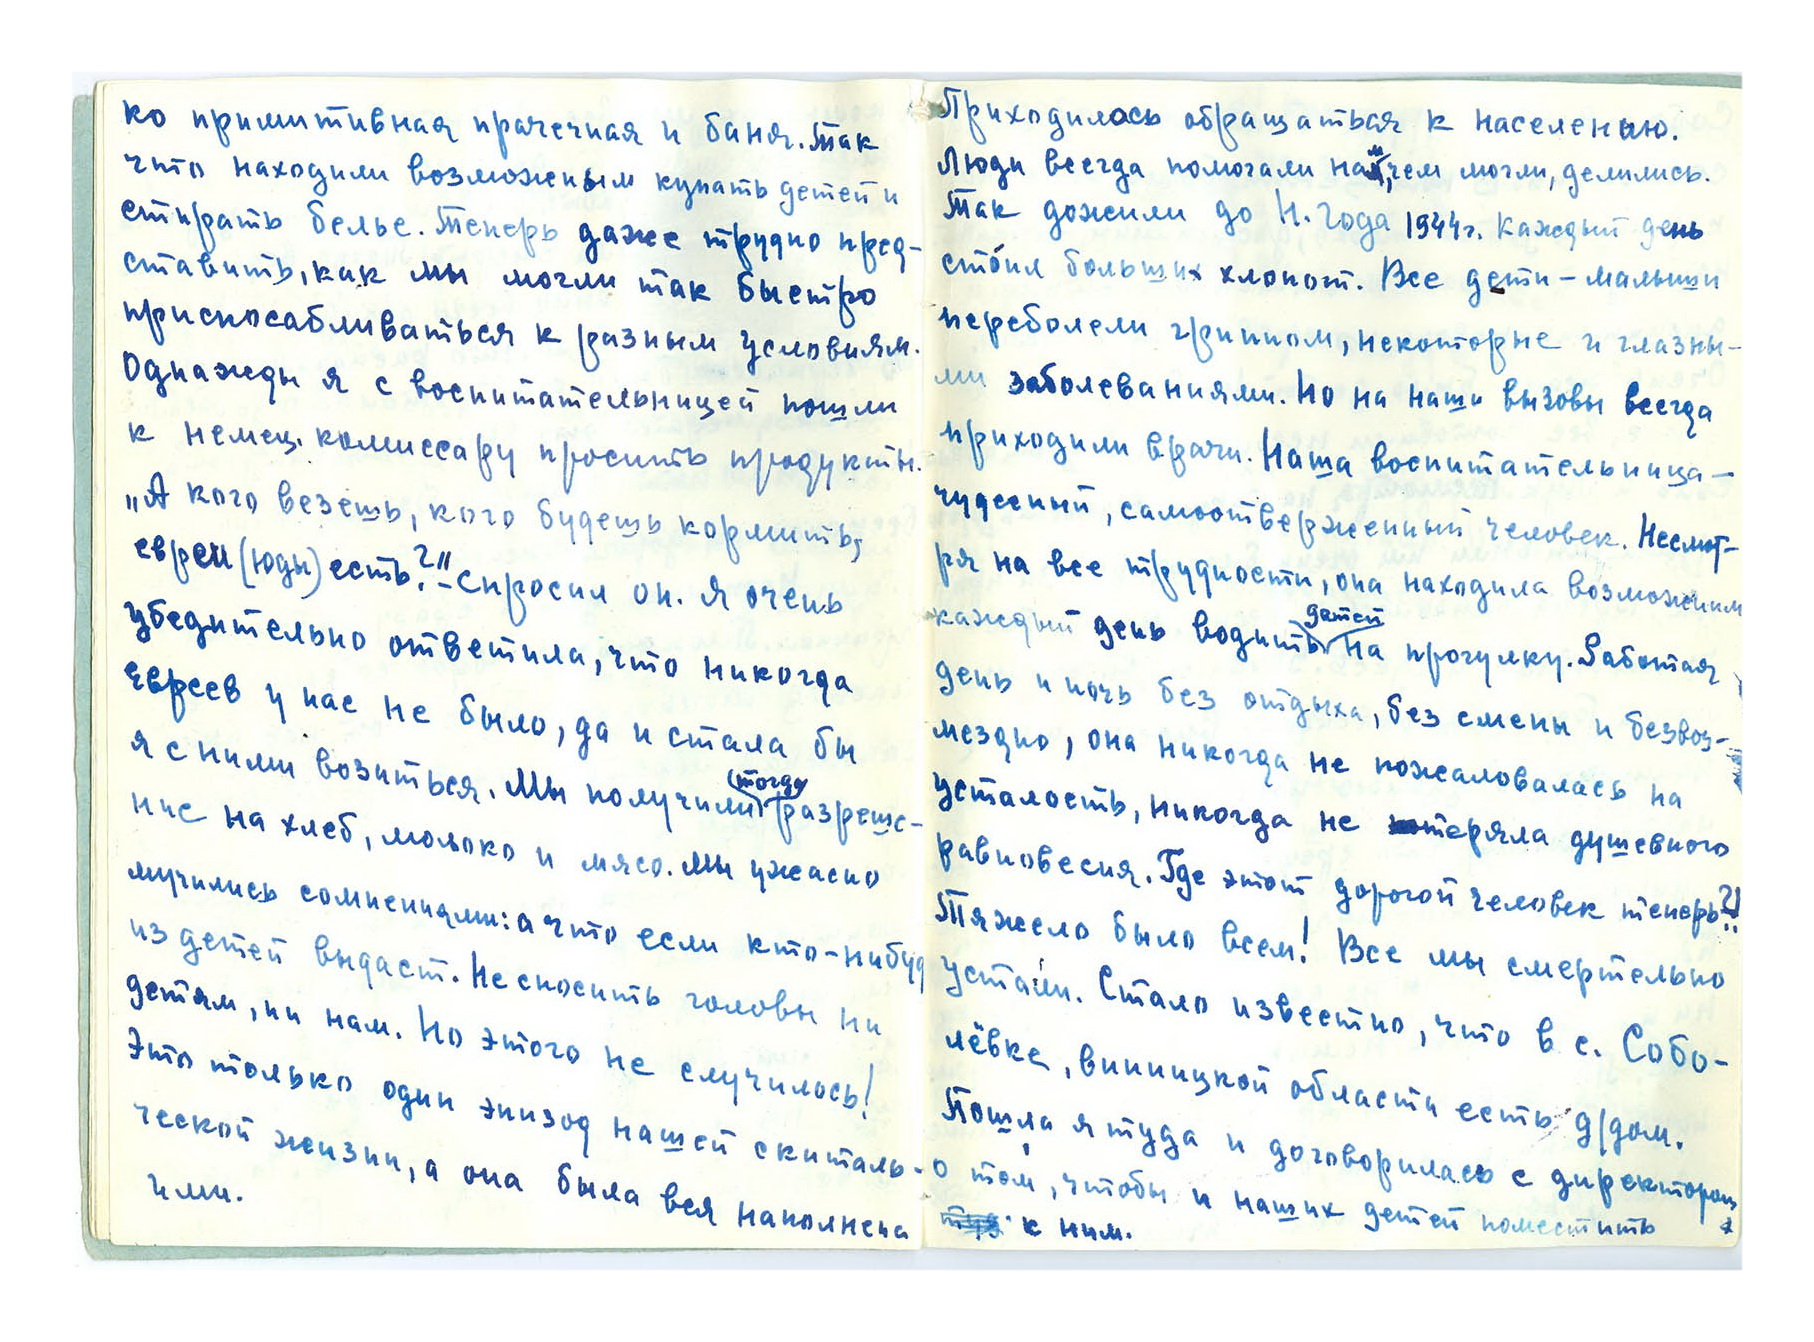 ко примитивная прачечная и баня. Так
что находили возможным купать детей и
стирать белье. Теперь даже трудно пред-
ставить, как мы могли так быстро
приспосабливаться к разным условиям.
Однажды я с воспитательницей пошли
к немец. комиссару просить продукты.
„А кого везешь, кого будешь кормить,
евреи (юды) есть?" – спросил он. Я очень
убедительно ответила, что никогда
евреев у нас не было, да и стала бы
я с ними возиться. Мы получили тогда разреше-
ние на хлеб, молоко и мясо. Мы ужасно
мучились сомнениями: а что если кто-нибуд
из детей выдаст. Не сносить головы ни
детям, ни нам. Но этого не случилось!
Это только один эпизод нашей скиталь-
ческой жизни, а она была вся наполнена
ими.
Приходилось обращаться к населению.
Люди всегда помогали нам, чем могли, делились.
Так дожили до Н. Года 1944г. Каждый день
сто́ил больших хлопот. Все дети – малыши
переболели гриппом, некоторые и глазны-
ми заболеваниями. Но на наши вызовы всегда
приходили врачи. Наша воспитательница –
чудесный, самоотверженный человек. Несмот-
ря на все трудности, она находила возможным
каждый день водить детей на прогулку. Работая
день и ночь без отдыха, без смены и безвоз-
мездно, она никогда не пожаловалась на
усталость, никогда не теряла душевного
равновесия. Где этот дорогой человек теперь?!
Тяжело было всем! Все мы смертельно
устали. Стало известно, что в с. Собо-
лёвке, винницкой области есть д/дом.
Пошла я туда и договорилась с директором
о том, чтобы и наших детей поместить
к ним.